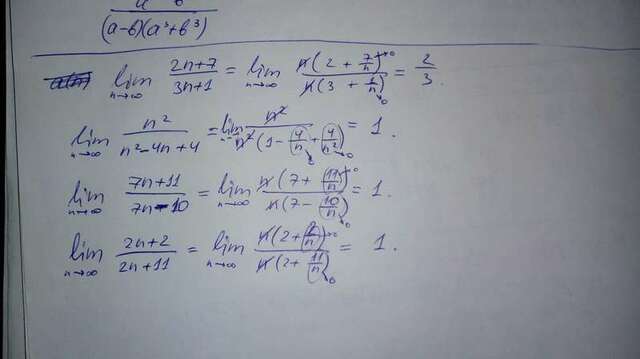 (a-b)(a³+b³)
lim n→∞ (2n+7)/(3n+1) = lim n→∞ n(2 + 7/n)→0 / n(3 + 1/n)→0 = 2/3.
lim n→∞ n²/(n²-4n+4) = lim n→∞ n²/n²(1 - 4/n + 4/n²)→0 = 1.
lim n→∞ (7n+11)/(7n-10) = lim n→∞ n(7 + 11/n)→0 / n(7 - 10/n)→0 = 1.
lim n→∞ (2n+2)/(2n+11) = lim n→∞ n(2 + 2/n)→0 / n(2 + 11/n)→0 = 1.